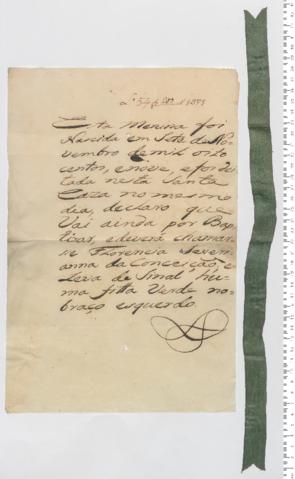 Esta Menina foi
Nascida em Sete de No-
vembro de mil oito
centos, e nove, e foi dei-
tada nesta Santa
Caza no mesmo
dia, declaro que
Vai ainda por Bap-
tizar, e deverá chamar-
se Florencia
anna da Conceição, e
Leva de Sinal, hu-
ma fitta Verde no
braço esquerdo